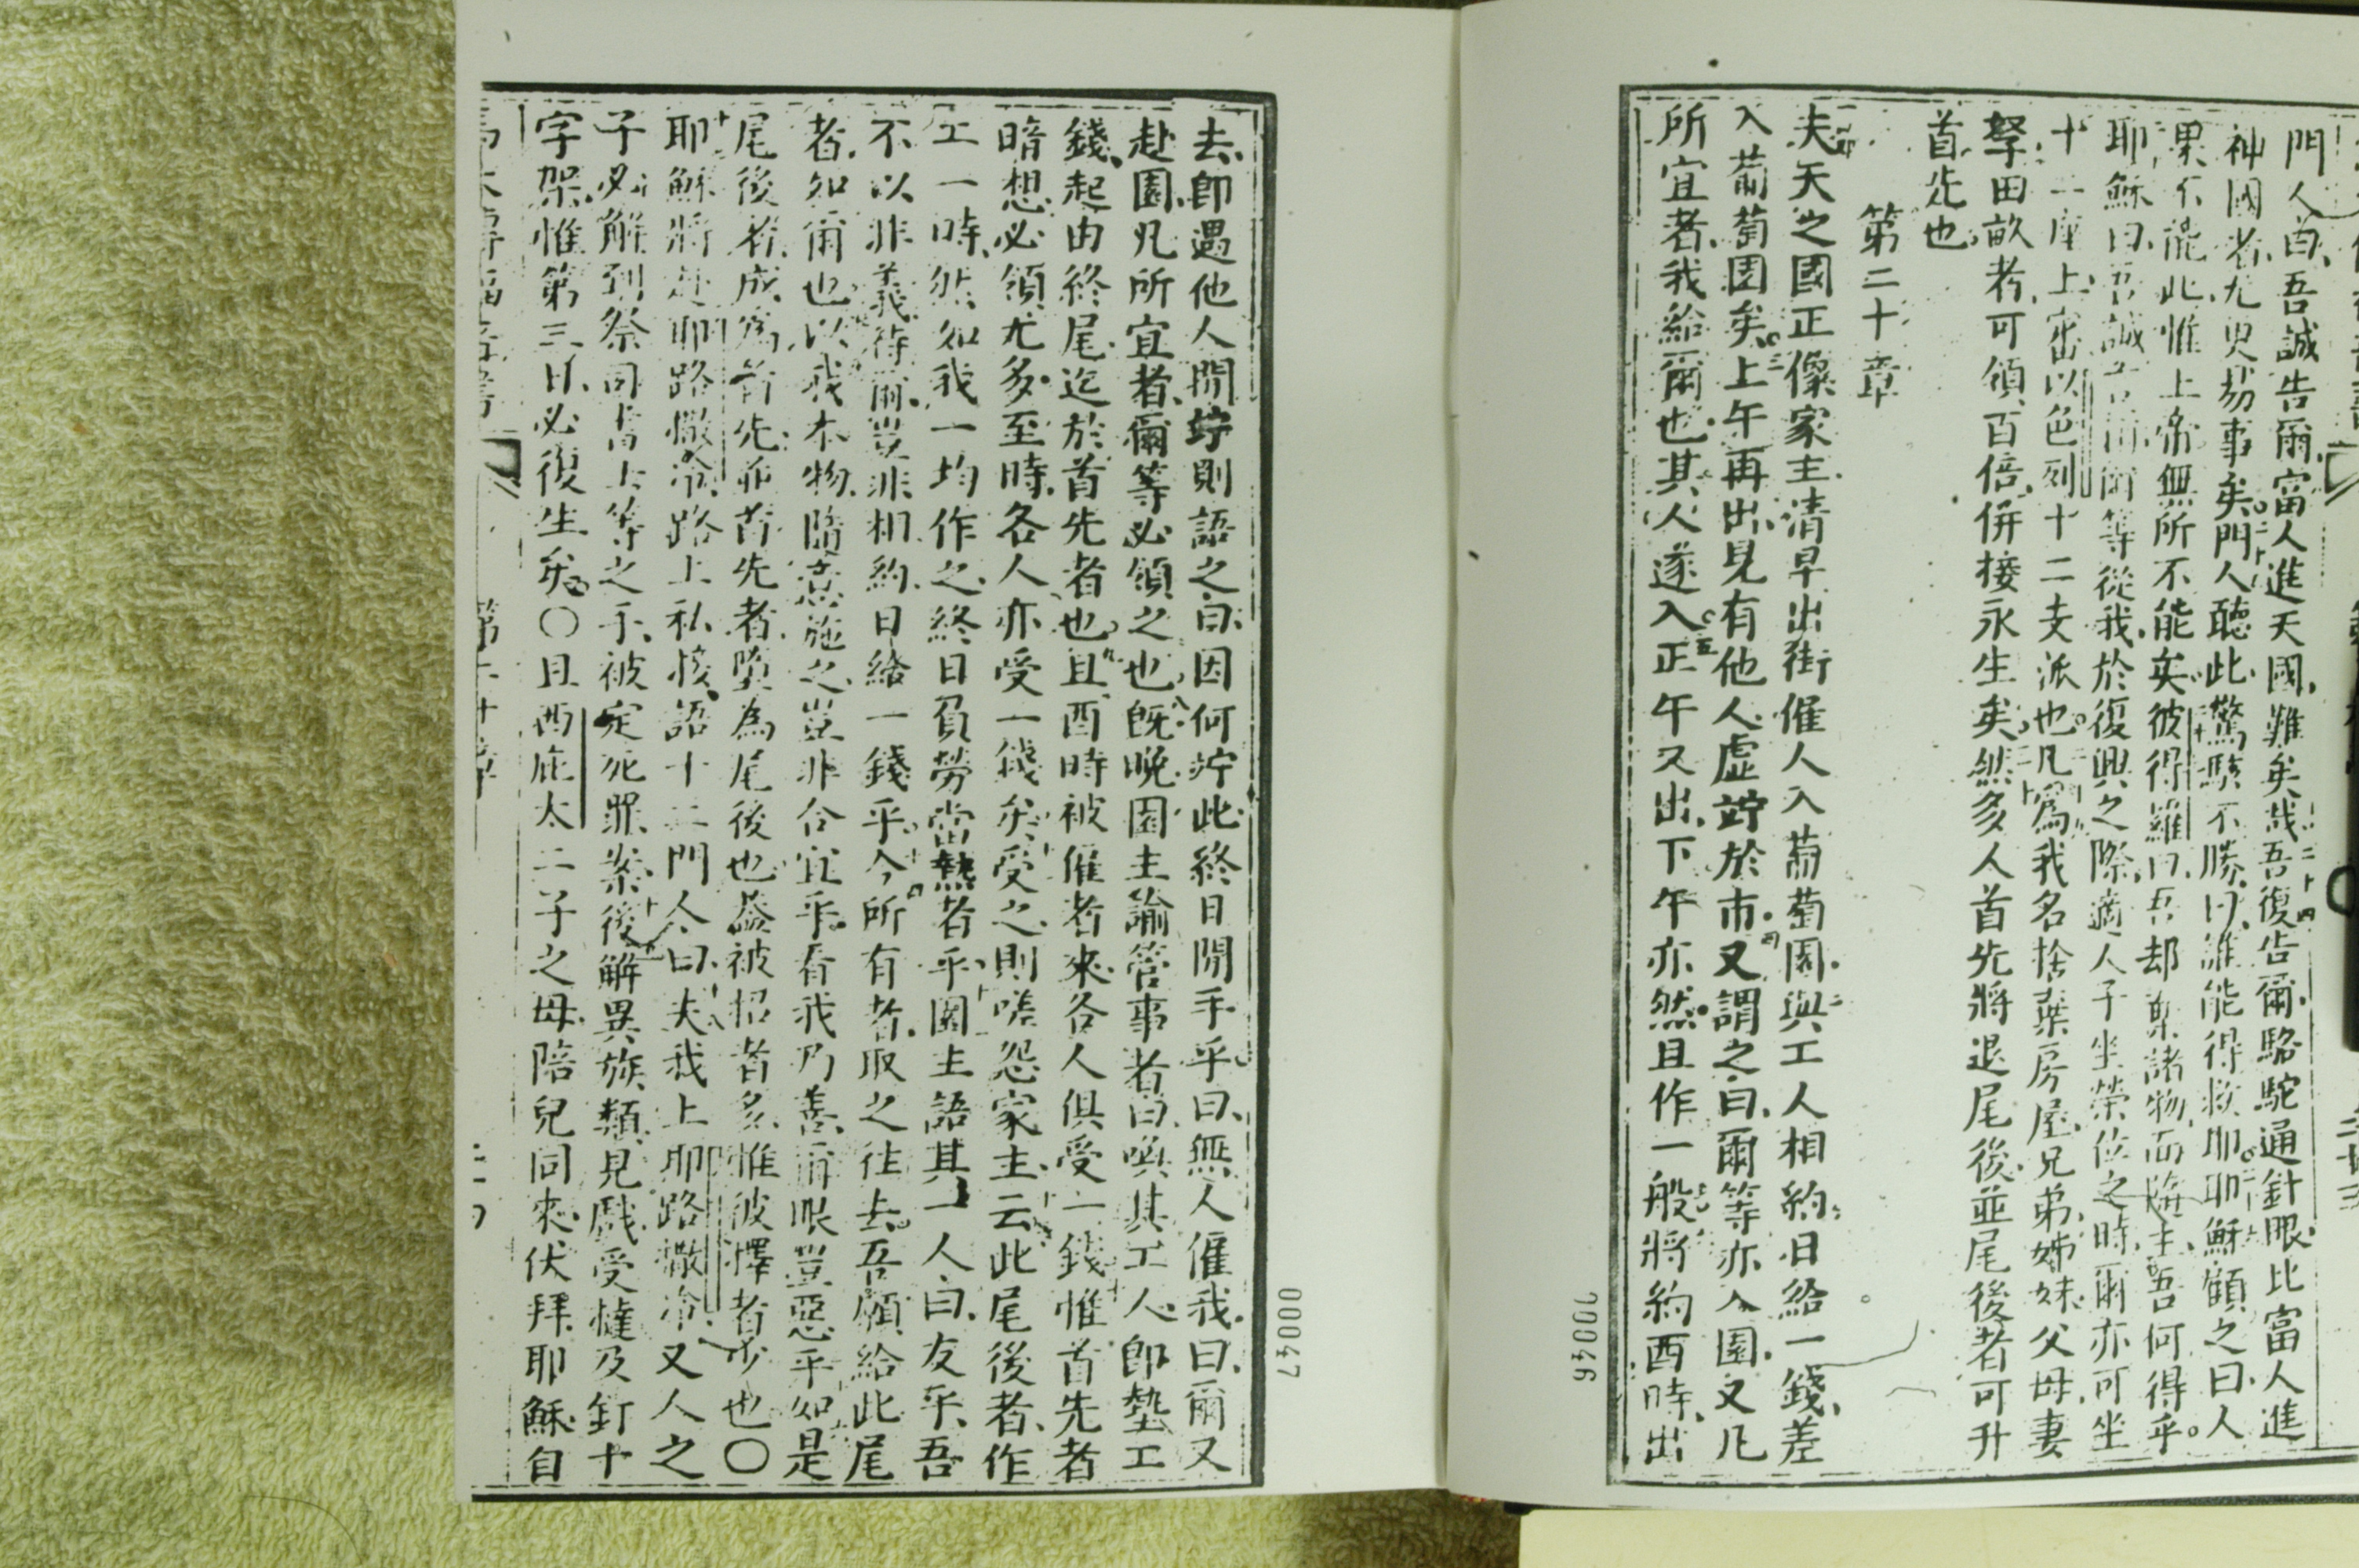 門人曰、吾誠告爾、富人進天國、難矣哉、吾復告爾、駱駝通針眼、比富人進
神國者、尤更易事矣。門人聽此、驚駭不勝、曰、誰能得救耶。耶穌顧之曰、人
果不能此、惟上帝無所不能矣。彼得羅曰、吾却棄諸物而隨主、吾何得乎。
耶穌曰、吾誠告爾、爾等從我、於復興之際、適人子坐榮位之時、爾亦可坐
十二座上、審以色列十二支派也。凡為我名捨棄房屋、兄弟、姊妹、父母、妻
孥、田畝者、可領百倍、併接永生矣。然多人首先將退尾後、並尾後者可升
首先也
第二十章
夫天之國正像家主清早出街僱人入葡萄園、與工人相約、日給一錢、差
入葡萄園矣。上午再出、見有他人虛竚於市、又謂之曰、爾等亦入園、又凡
所宜者、我給爾也、其人遂入。正午又出、下午亦然、且作一般、將約酉時、出
去、即遇他人閒竚、則語之曰、因何竚此、終日閒手乎、曰、無人僱我、曰、爾又
赴園、凡所宜者、爾等必領之也。既晚、園主諭管事者曰、喚其工人、即墊工
錢、起由終尾、迄於首先者也。且酉時被僱者來、各人俱受一錢、惟首先者
暗想、必領尤多、至時、各人亦受一錢矣。受之、則嗟怨家主、云、此尾後者、作
工一時、然如我一均作之、終日負勞當熱者乎、園主語其一人、曰、友乎、吾
不以非義待爾、豈非相約、日給一錢乎。今所有者、取之往去、吾願給此尾
者、如爾也、以我本物、隨意施之、豈非合宜乎、看我乃善、爾眼豈惡乎、如是
尾後者、成為首先、並首先者、墮為尾後也、蓋被招者多、惟彼擇者少也〇
耶穌將赴耶路撒冷、路上私係、語十二門人曰、夫我上耶路撒冷、又人之
子必解到祭司書士等之手、被定死罪案、後解異族類、見戲、受撻、及釘十
字架、惟第三日、必復生矣。〇且西庇太二子之母、陪兒同來、伏拜耶穌、自